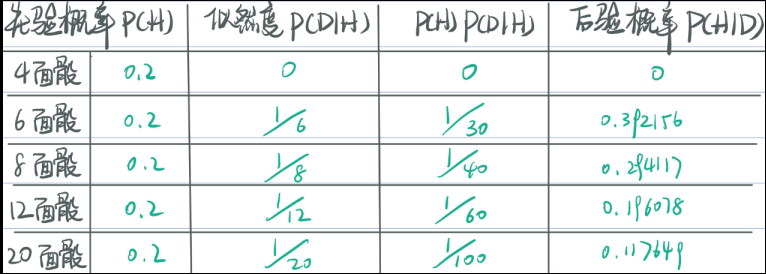 先验概率 P(H) 似然度 P(D|H) P(H)P(D|H) 后验概率 P(H|D)
4面骰 0.2 0 0 0
6面骰 0.2 1/6 1/30 0.392156
8面骰 0.2 1/8 1/40 0.294117
12面骰 0.2 1/12 1/60 0.196078
20面骰 0.2 1/20 1/100 0.117649